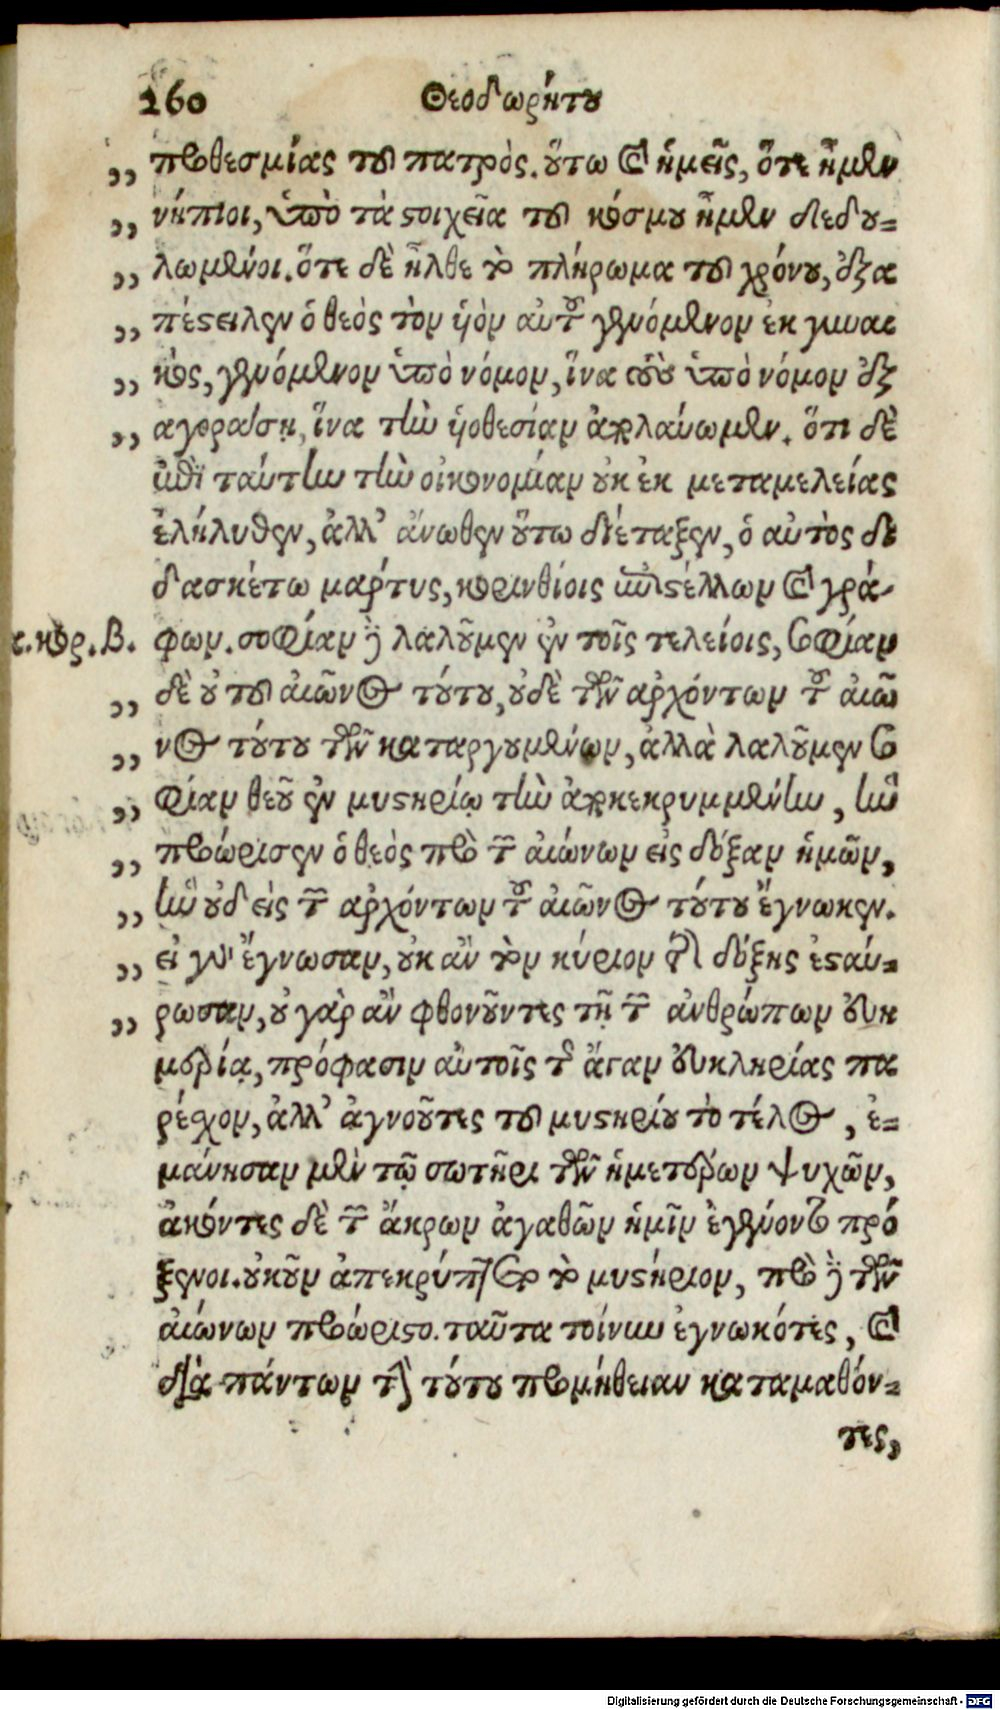 260 Θεοδωρήτου
„ προθεσμίας τοῦ πατρὸς. οὕτω καὶ ἡμεῖς, ὅτε ἦμεν
„ νήπιοι, ὑπὸ τὰ στοιχεῖα τοῦ κόσμου ἦμεν δεδου-
„ λωμένοι. ὅτε δὲ ἦλθε τὸ πλήρωμα τοῦ χρόνου, ἐξα
„ πέστειλεν ὁ θεὸς τὸν υἱὸν αὐτοῦ γενόμενον ἐκ γυναι
„ κὸς, γενόμενον ὑπὸ νόμον, ἵνα τοὺς ὑπὸ νόμον ἐξ
„ αγοράσῃ, ἵνα τὴν υἱοθεσίαν ἀπολάβωμεν. ὅτι δὲ
ἐπὶ ταύτην τὴν οἰκονομίαν οὐκ ἐκ μεταμελείας
ἐλήλυθεν, ἀλλ' ἄνωθεν οὕτω διέταξεν, ὁ αὐτὸς δι
δασκέτω μαρτυς, κορινθίοις ἐπιστέλλων καὶ γρά-
α. κορ. β. φων. σοφίαν δὲ λαλοῦμεν ἐν τοῖς τελείοις, σοφίαν
„ δὲ οὐ τοῦ αἰῶνος τούτου, οὐδὲ τῶν αρχόντων τοῦ αἰῶ
„ νος τούτου τῶν καταργουμένων, ἀλλὰ λαλοῦμεν σο
„ φίαν θεοῦ ἐν μυστηρίῳ τὴν ἀποκεκρυμμένην, ἣν
„ προώρισεν ὁ θεὸς πρὸ τῶν αἰώνων εἰς δόξαν ἡμῶν,
„ ἣν οὐδεὶς τῶν αρχόντων τοῦ αἰῶνος τούτου ἔγνωκεν.
„ εἰ γὰρ ἔγνωσαν, οὐκ ἂν τὸν κύριον τῆς δόξης ἐσταύ-
„ ρωσαν, οὐ γὰρ ἂν φθονοῦντες τῇ τῶν ἀνθρώπων εὐη
μερίᾳ, πρόφασιν αὐτοῖς τῆς ἄγαν εὐκληρίας πα
ρέσχον, ἀλλ' ἀγνοοῦτες τοῦ μυστηρίου τὸ τέλος, ἐ-
μάνησαν μὲν τῷ σωτῆρι τῶν ἡμετέρων ψυχῶν,
ἀκόντες δὲ τῶν ἄκρων ἀγαθῶν ἡμῖν ἐγένοντο πρό
ξενοι. οὐκοῦν ἀπεκρύπτετο τὸ μυστήριον, πρὸ δὲ τῶν
αἰώνων προώριστο. ταῦτα τοίνυν ἐγνωκότες, καὶ
διὰ πάντων τὴν τούτου προμήθειαν καταμαθόν-
τες,
Digitalisierung gefördert durch die Deutsche Forschungsgemeinschaft - DFG